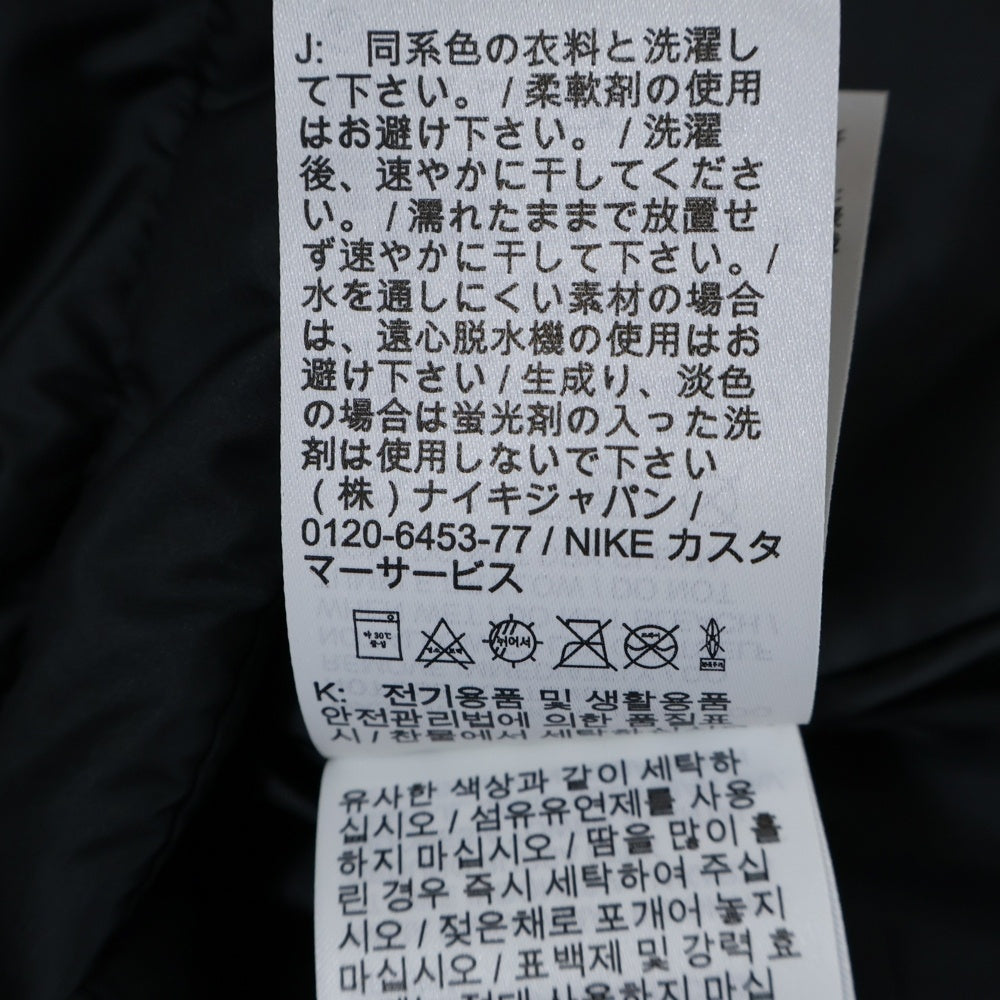 J: 同系色の衣料と洗濯し
て下さい。 / 柔軟剤の使用
はお避け下さい。 / 洗濯
後、速やかに干してくださ
い。 / 濡れたままで放置せ
ず速やかに干して下さい。 /
水を通しにくい素材の場合
は、遠心脱水機の使用はお
避け下さい / 生成り、淡色
の場合は蛍光剤の入った洗
剤は使用しないで下さい
( 株 ) ナイキジャパン /
0120-6453-77 / NIKE カスタ
マーサービス
약 30℃ 중성
K: 전기용품 및 생활용품
안전관리법에 의한 품질표
시 / 찬물에서
유사한 색상과 같이 세탁하
십시오 / 섬유유연제를 사용
하지 마십시오 / 땀을 많이 흘
린 경우 즉시 세탁하여 주십
시오 / 젖은채로 포개어 놓지
마십시오 / 표백제 및 강력 효
사용하지 마십